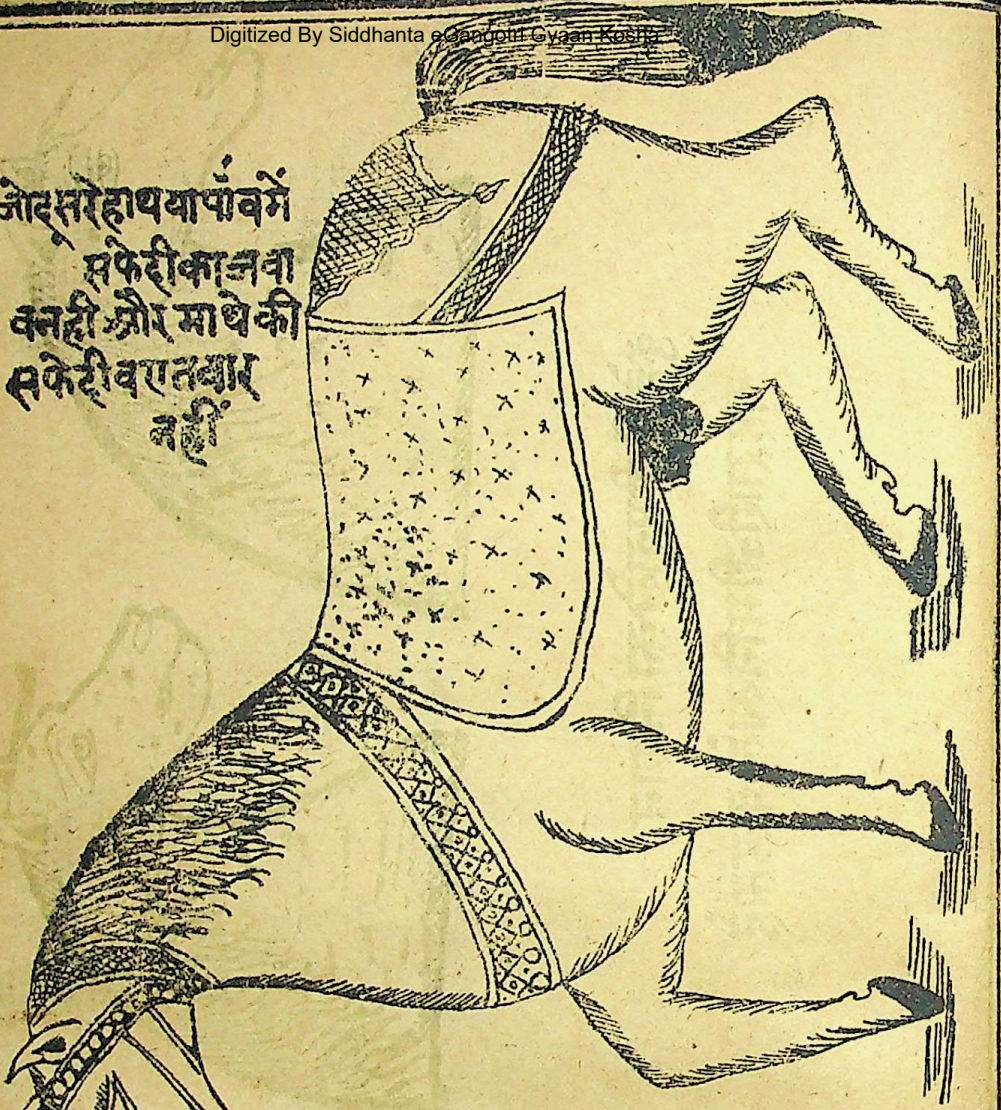 Digitized By Siddhanta eGangotri Gyaan Kosha
जोदूसरेहाथयापाँवमें
सफेदीकाजवा
बनहीऔरमाथेकी
सफेदीवएतबार
नहीं